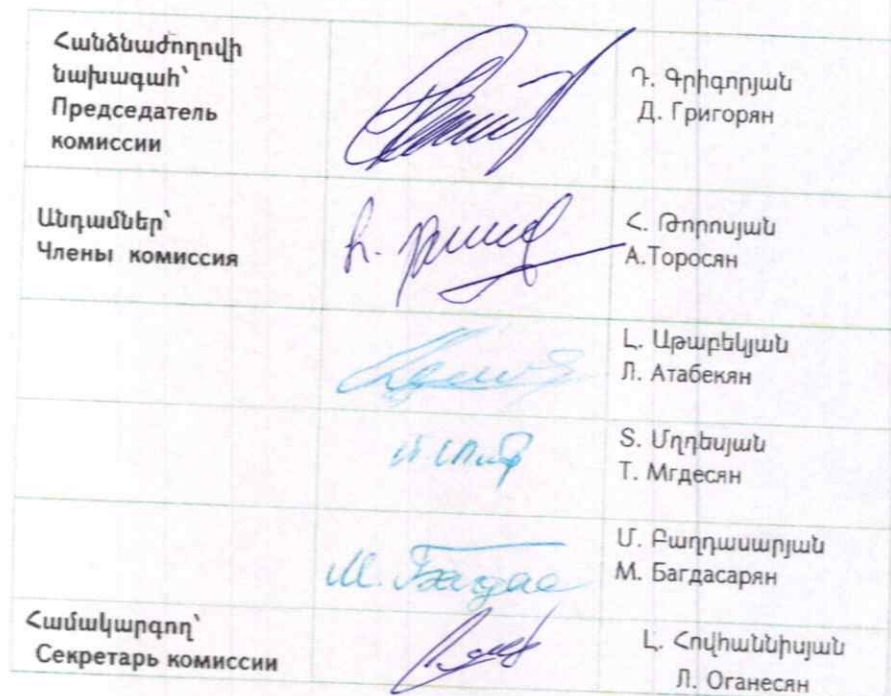 Հանձնաժողովի
նախագահ՝
Председатель
комиссии
Դ. Գրիգորյան
Д. Григорян
Անդամներ՝
Члены комиссия
Հ. Թորոսյան
А.Торосян
Լ. Աթաբեկյան
Л. Атабекян
Տ. Մղդեսյան
Т. Мгдесян
М. Багдас
Մ. Բաղդասարյան
М. Багдасарян
Համակարգող՝
Секретарь комиссии
Լ. Հովհաննիսյան
Л. Оганесян